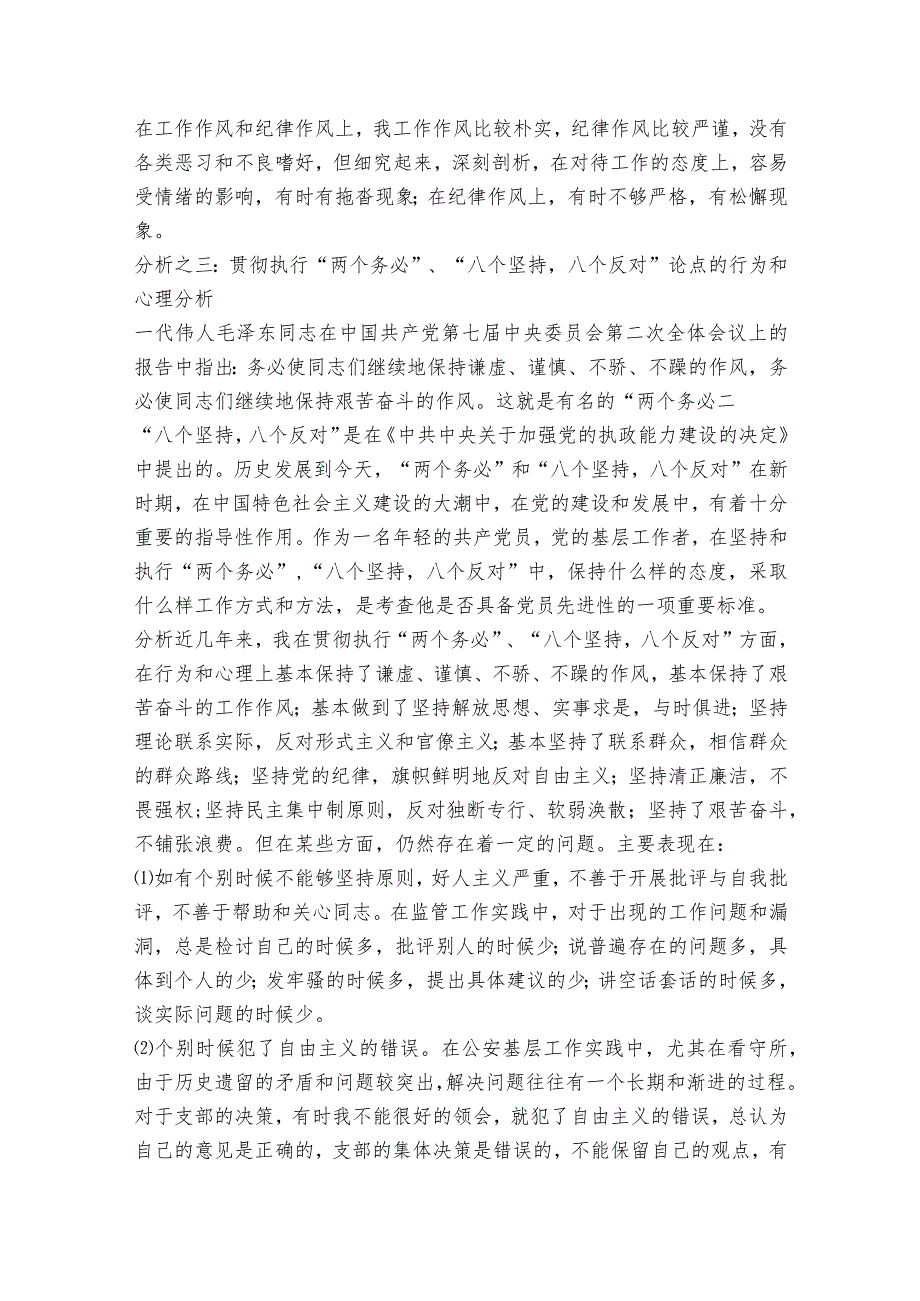 在工作作风和纪律作风上，我工作作风比较朴实，纪律作风比较严谨，没有
各类恶习和不良嗜好，但细究起来，深刻剖析，在对待工作的态度上，容易
受情绪的影响，有时有拖沓现象；在纪律作风上，有时不够严格，有松懈现
象。
分析之三：贯彻执行“两个务必”、“八个坚持，八个反对”论点的行为和
心理分析
一代伟人毛泽东同志在中国共产党第七届中央委员会第二次全体会议上的
报告中指出：务必使同志们继续地保持谦虚、谨慎、不骄、不躁的作风，务
必使同志们继续地保持艰苦奋斗的作风。这就是有名的“两个务必二
“八个坚持，八个反对”是在《中共中央关于加强党的执政能力建设的决定》
中提出的。历史发展到今天，“两个务必”和“八个坚持，八个反对”在新
时期，在中国特色社会主义建设的大潮中，在党的建设和发展中，有着十分
重要的指导性作用。作为一名年轻的共产党员，党的基层工作者，在坚持和
执行“两个务必”,“八个坚持，八个反对”中，保持什么样的态度，采取
什么样工作方式和方法，是考查他是否具备党员先进性的一项重要标准。
分析近几年来，我在贯彻执行“两个务必”、“八个坚持，八个反对”方面，
在行为和心理上基本保持了谦虚、谨慎、不骄、不躁的作风，基本保持了艰
苦奋斗的工作作风；基本做到了坚持解放思想、实事求是，与时俱进；坚持
理论联系实际，反对形式主义和官僚主义；基本坚持了联系群众，相信群众
的群众路线；坚持党的纪律，旗帜鲜明地反对自由主义；坚持清正廉洁，不
畏强权;坚持民主集中制原则，反对独断专行、软弱涣散；坚持了艰苦奋斗，
不铺张浪费。但在某些方面，仍然存在着一定的问题。主要表现在：
⑴如有个别时候不能够坚持原则，好人主义严重，不善于开展批评与自我批
评，不善于帮助和关心同志。在监管工作实践中，对于出现的工作问题和漏
洞，总是检讨自己的时候多，批评别人的时候少；说普遍存在的问题多，具
体到个人的少；发牢骚的时候多，提出具体建议的少；讲空话套话的时候多，
谈实际问题的时候少。
⑵个别时候犯了自由主义的错误。在公安基层工作实践中，尤其在看守所，
由于历史遗留的矛盾和问题较突出，解决问题往往有一个长期和渐进的过程。
对于支部的决策，有时我不能很好的领会，就犯了自由主义的错误，总认为
自己的意见是正确的，支部的集体决策是错误的，不能保留自己的观点，有